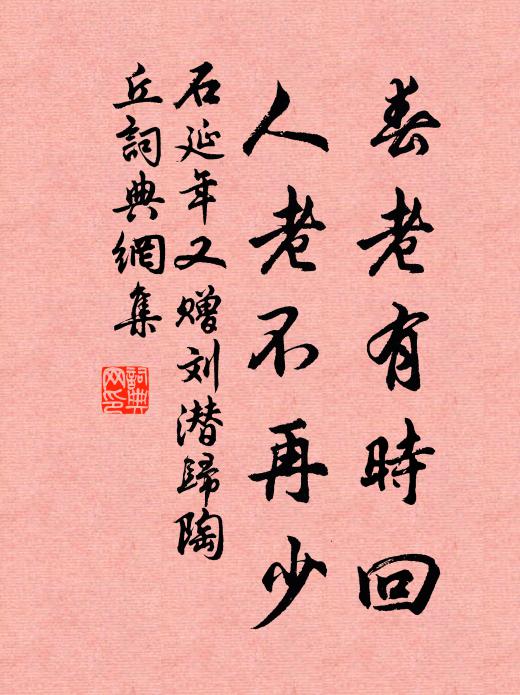 春老有時回
人老不再少
石延年又赠刘潜歸陶
丘詞典網集
詞典
网印